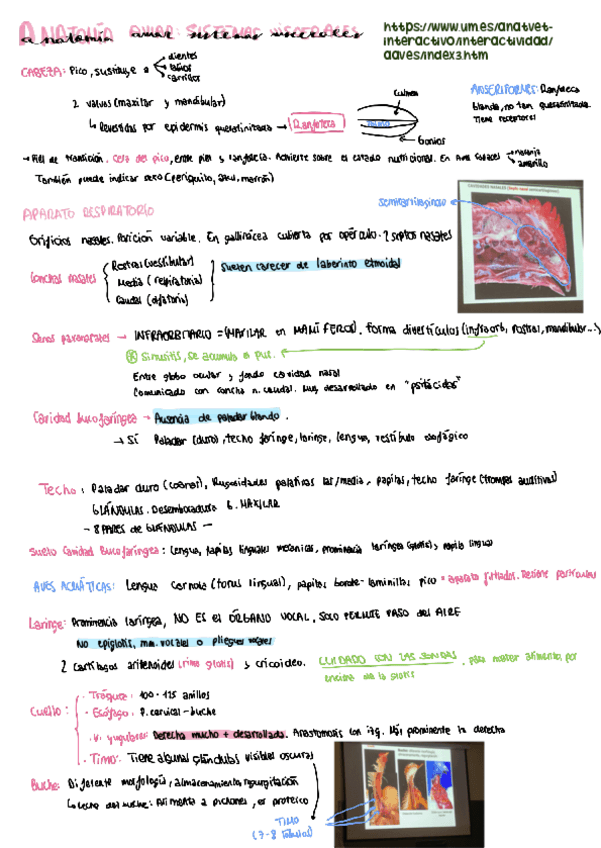 ANATOMÍA AVIAR: SISTEMAS VISCERALES
anatomía aviar sistemas viscerales
https://www.um.es/anatvet-
interactivo/interactividad/
aaves/index3.htm
CABEZA: Pico, sustituye a
dientes
labios
carrillos
2 valvas (maxilar y mandibular)
↳ Revestidas por epidermis queratinizada → Ranfoteca
Culmen
Gonios
ANSERIFORMES: Ranfoteca
blanda, no tan queratinizada.
Tiene receptores!
→ Piel de transición. Cera del pico, entre piel y ranfoteca. Advierte sobre el estado nutricional. En Aves rapaces
naranja
amarillo
También puede indicar sexo (periquito, azul, marrón)
APARATO RESPIRATORIO
semicartilaginoso
Orificios nasales. Posición variable. En gallinácea cubierta por opérculo. 2 septos nasales
Conchas nasales
Rostral (vestibular)
Media (respiratoria)
Caudal (olfatoria)
Suelen carecer de laberinto etmoidal
Senos paranasales → INFRAORBITARIO = (MAXILAR en MAMÍFEROS). forma divertículos (infraorb, rostral, mandibular...)
Sinusitis, se acumula el pus.
Entre globo ocular y fondo cavidad nasal
Comunicado con concha n. caudal. Muy desarrollado en "psitácidas"
Cavidad bucofaríngea → Ausencia de paladar blando.
→ Sí Paladar (duro), techo faringe, laringe, lengua, vestíbulo esofágico
Techo: Paladar duro (coanas), Rugosidades palatinas lat/media, papilas, techo faringe (trompas auditivas)
GLÁNDULAS. Desembocadura G. MAXILAR
- 8 PARES de GLÁNDULAS -
Suelo Cavidad Bucofaríngea: Lengua, papilas linguales mecánicas, prominencia laríngea (glotis), papila lingual
AVES ACUÁTICAS: Lengua carnosa (torus lingual), papilas borde - laminillas pico = aparato filtrador. Retiene partículas
Laringe: Prominencia laríngea, NO ES el ÓRGANO VOCAL, SOLO PERMITE PASO del AIRE
No epiglotis, mm. vocales o pliegues vocales
2 Cartílagos aritenoides (rima glotis) y cricoideo. CUIDADO CON LAS SONDAS, para meter alimento, por
encima de la glotis
Cuello:
· Tráquea: 100-125 anillos
· Esófago: P. cervical - buche
· V. yugulares: Derecha mucho + desarrollada. Anastomosis con izq. Más prominente la derecha
· Timo: Tiene algunas glándulas visibles oscuras
Buche: Diferente morfología, almacenamiento, regurgitación
↳ Leche del buche: Alimenta a pichones, es proteico
TIMO
(7-8 lóbulos)